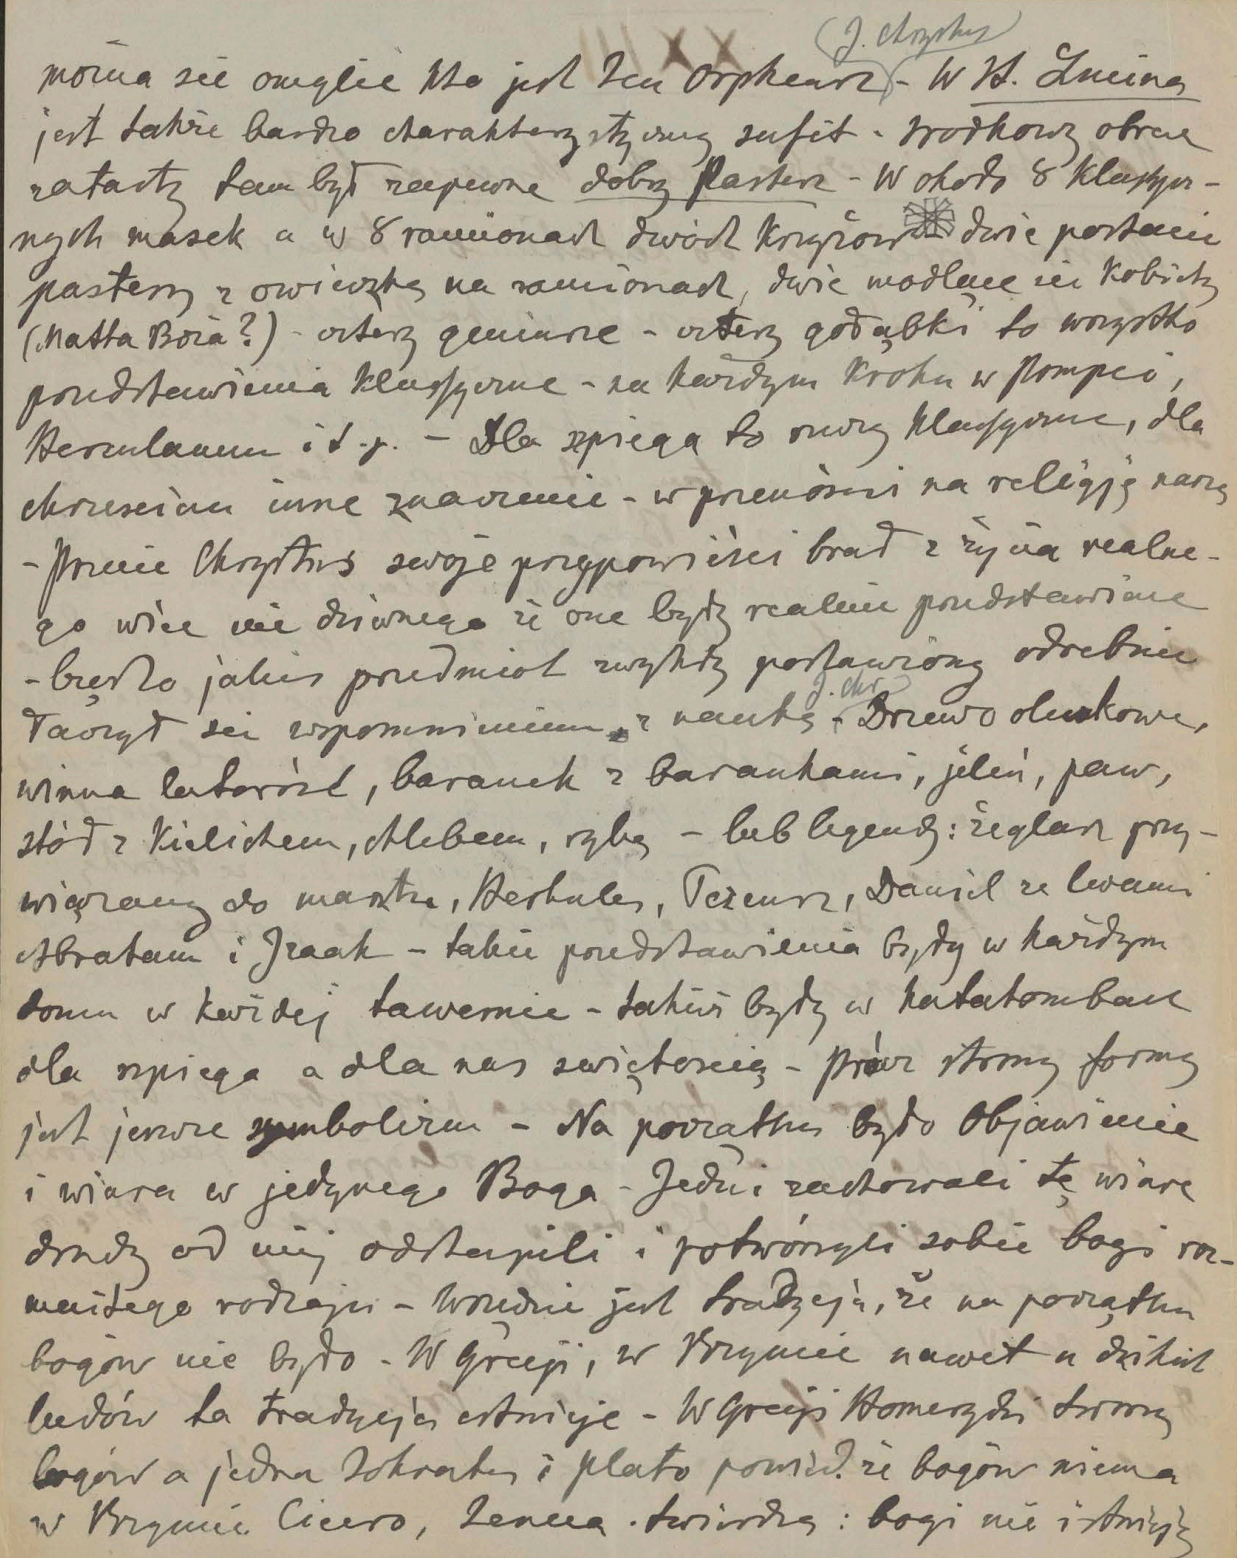 XXIII
(J. Chrystus)
można się omylić kto jest ten Orpheusz - W St. Lucina
jest także bardzo charakterystyczny sufit - środkowy obraz
zatarty tam był zapewne dobry Pasterz - W około 8 klassycz-
nych masek a w 8 ramionach dwóch krzyżów dwie postacie
pasterzy z owieczką na ramionach, dwie modlące się kobiety
(Matka Boża?) - cztery geniusze - cztery gołąbki to wszystko
przedstawienia klassyczne - na każdym kroku w Pompei,
Herculanum i t. p. - Dla szpiega to rzeczy klassyczne, dla
chrześcian inne znaczenie - w przenośni na religję naszą
- Przecie Chrystus swoje przypowieści brał z życia realne-
go więc nie dziwnego że one były realnie przedstawiane
- często jakiś przedmiot zwykły postawiony odrębnie
łączył się wspomnieniem z nauką J. Chr. - Drzewo oliwkowe,
winna latorośl, baranek z barankami, jeleń, paw,
stół z kielichem, chlebem, rybą - lub legendy: żeglarz przy-
wiązany do masztu, Herkules, Tezeusz, Daniel ze lwami
Abraham i Izaak - takie przedstawienia były w każdym
domu w każdej tawernie - takież były w katakombach
dla szpiega a dla nas świętością - Prócz strony formy
jest jeszcze symbolizm - Na początku było Objawienie
i wiara w jedynego Boga - Jedni zachowali tę wiarę
drudzy od niej odstąpili i potworzyli sobie bogi roz-
maitego rodzaju - Wszędzie jest tradycja, że na początku
bogów nie było - W Grecji, w Rzymie nawet u dzikich
ludów ta tradycja istnieje - W Grecji Homerydzi tworzą
bogów a jedna Sokrates i Plato powied. że bogów niema
w Rzymie Cicero, Seneca twierdzą: bogi nie istnieją